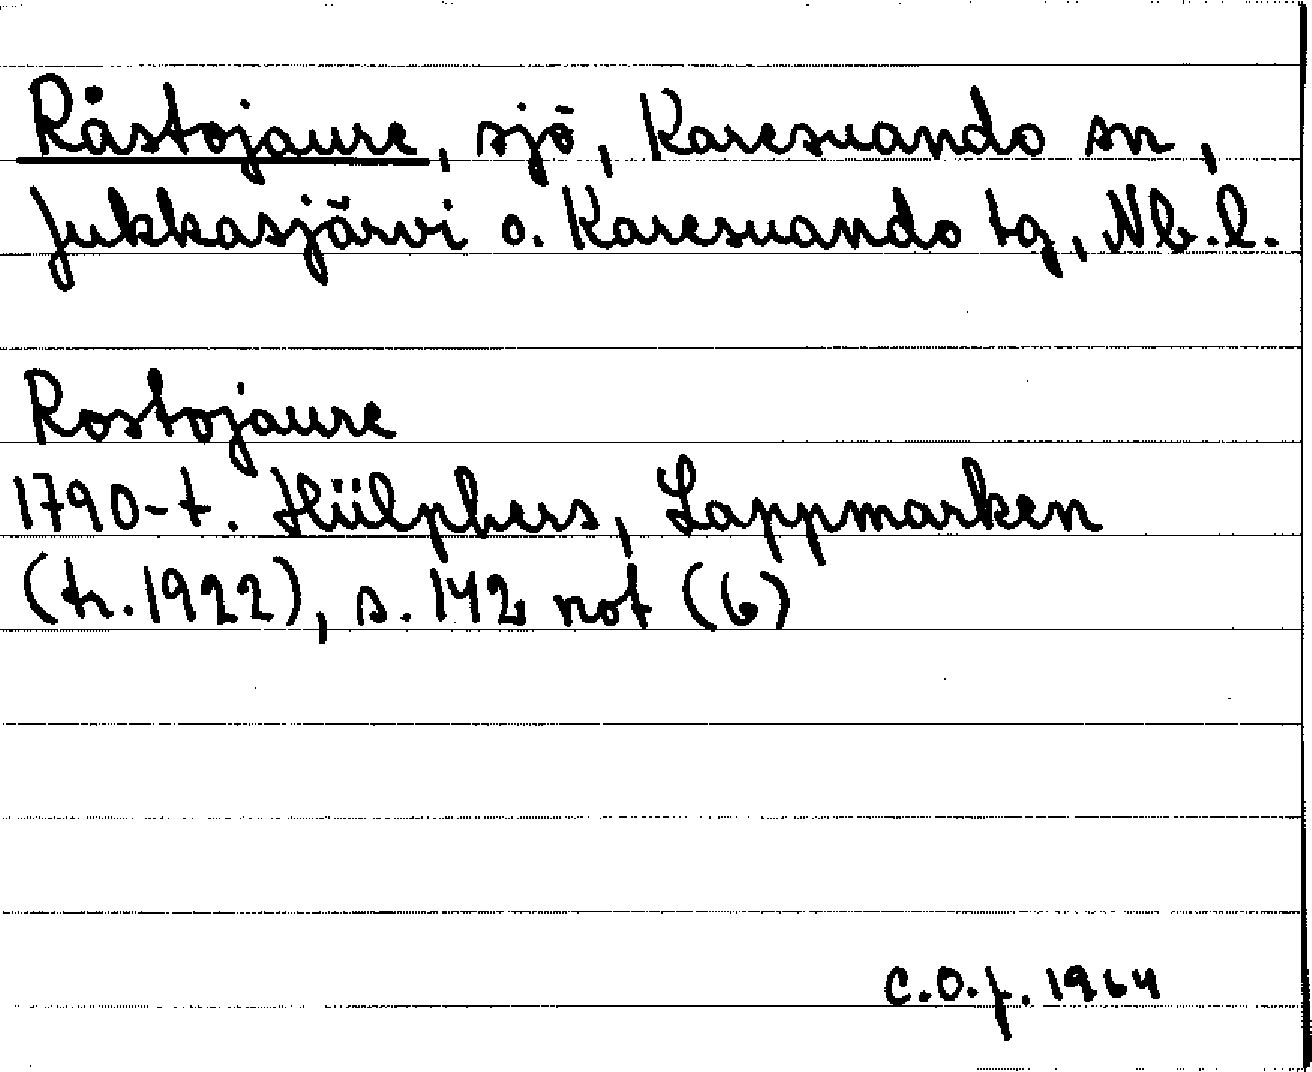 Råstojaure, sjö, Karesuando sn,
Jukkasjärvi o. Karesuando tg, Nb.l.
Rostojaure
1790-t. Hülphers, Lappmarken
(tr. 1922), s. 142 not (6)
C.O.J. 1964